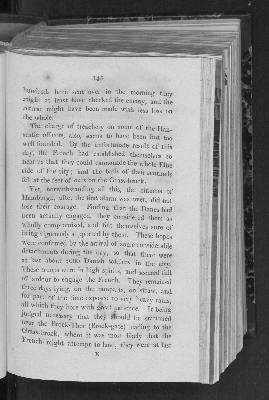 145
hundreds been sent over in the morning they
might at least have checked the enemy, and the
retreat might have been made with less loss on
the whole.
The charge of treachery on some of the Han-
seatic officers, also, seems to have been but too
well founded. By the unfortunate result of this
day, the French had established themselves so
near us that they could cannonade the whole Elbe
side of the city; and the balls of their
fell at the foot of ours on the Grass-brook.
Yet, notwithstanding all this, the citizens of
Hamburgh, after the first alarm was over, did not
lose their courage. Finding that the Danes had
been actively engaged, they considered them as
wholly compromised, and felt themselves sure of
being vigorously supported by them. These hopes
were confirmed by the arrival of some considerable
detachments during the day, so that there were
at last about 5000 Danish soldiers in the city.
These troops were in high spirits, and seemed full
of ardour to engage the French. They remained
three days lying, on the ramparts, on straw, and
for part of the time exposed to very heavy rains,
all which they bore with great patience. It being
judged necessary that they should be stationed
near the Brock-Thor (Brock-gate) leading to the
Grass-brook, where it was most likely that the
French might attempt to land, they were at last
K